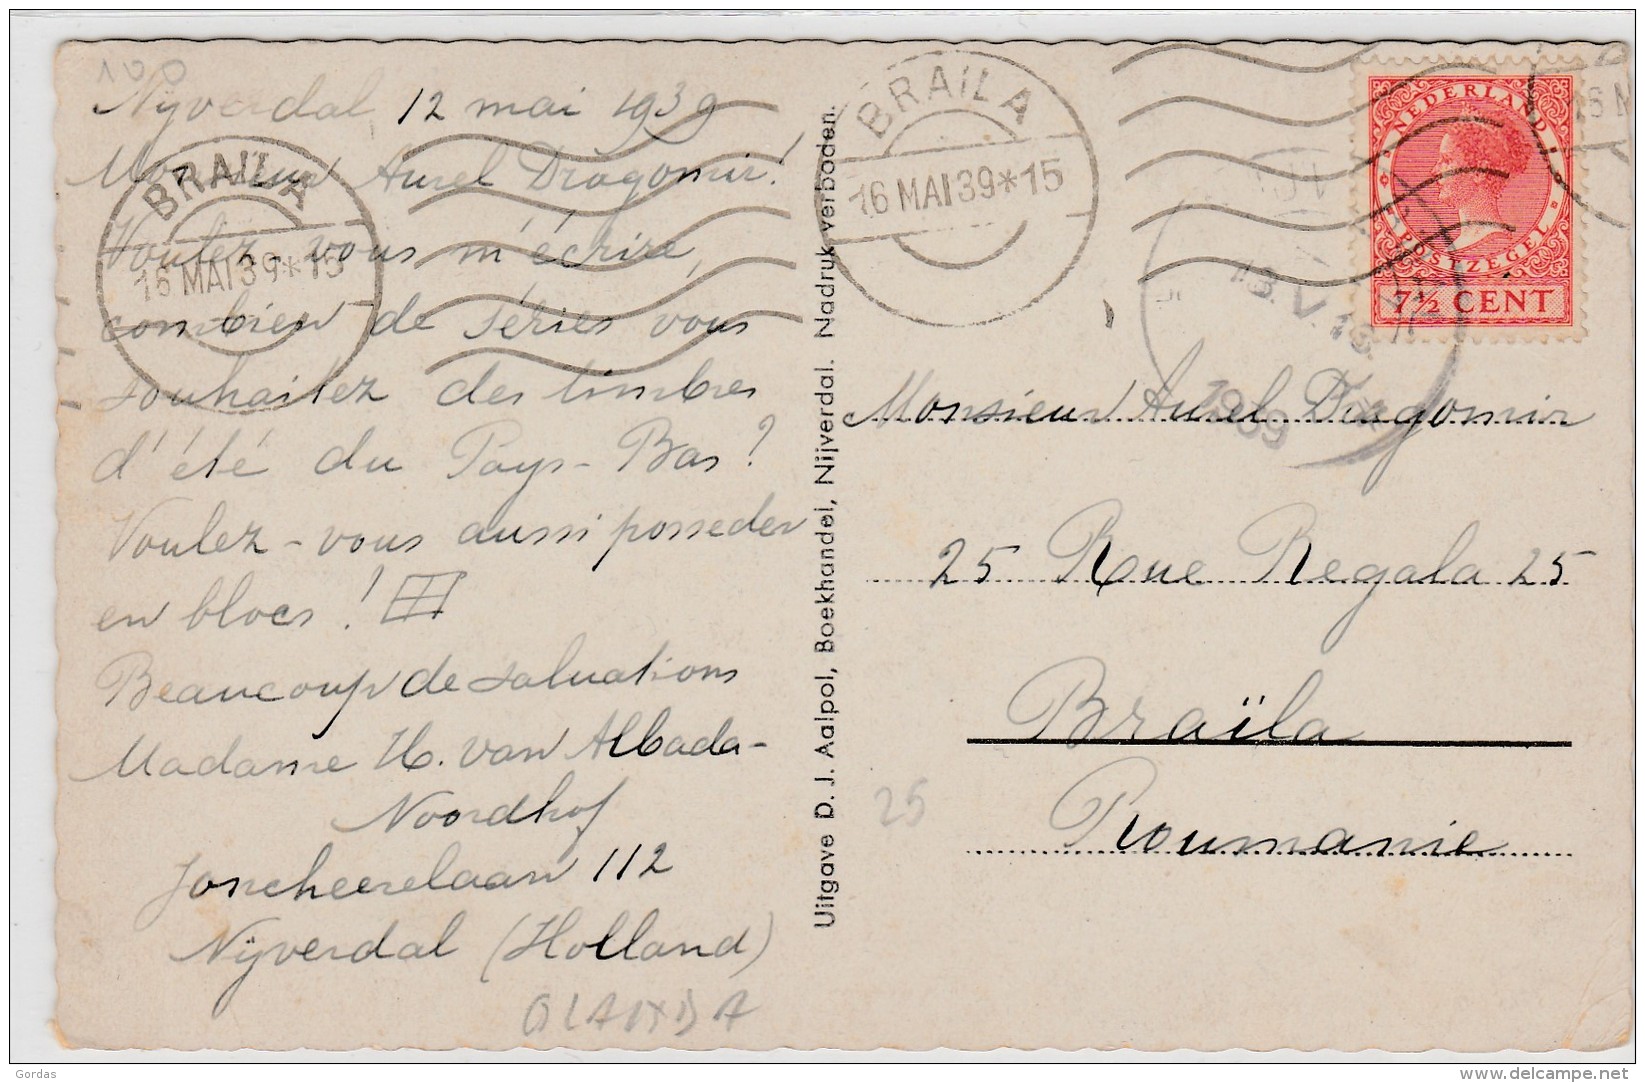 100
Nijverdal, 12 mai 1939
Monsieur Aurel Dragomir!
Voulez-vous m'écrire,
combien de séries vous
souhaitez des timbres
d'été du Pays-Bas?
Voulez-vous aussi posseder
en blocs!
Beaucoup de saluations
Madame H. van Albada-
Noordhof
Joncheerelaan 112
Nijverdal (Holland)
OLANDA
BRAILA
16 MAI 39*15
Uitgave D. J. Aalpol, Boekhandel, Nijverdal. Nadruk verboden.
BRAILA
16 MAI 39*15
NEDERLAND
POSTZEGEL
7½ CENT
16 M
13.V.
1939
Monsieur Aurel Dragomir
25 Rue Regala 25
Braïla
Roumanie
25
Gordas
delcampe.net